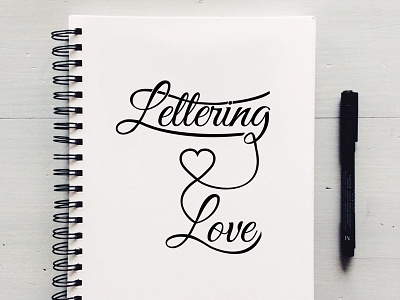 Lettering
Love